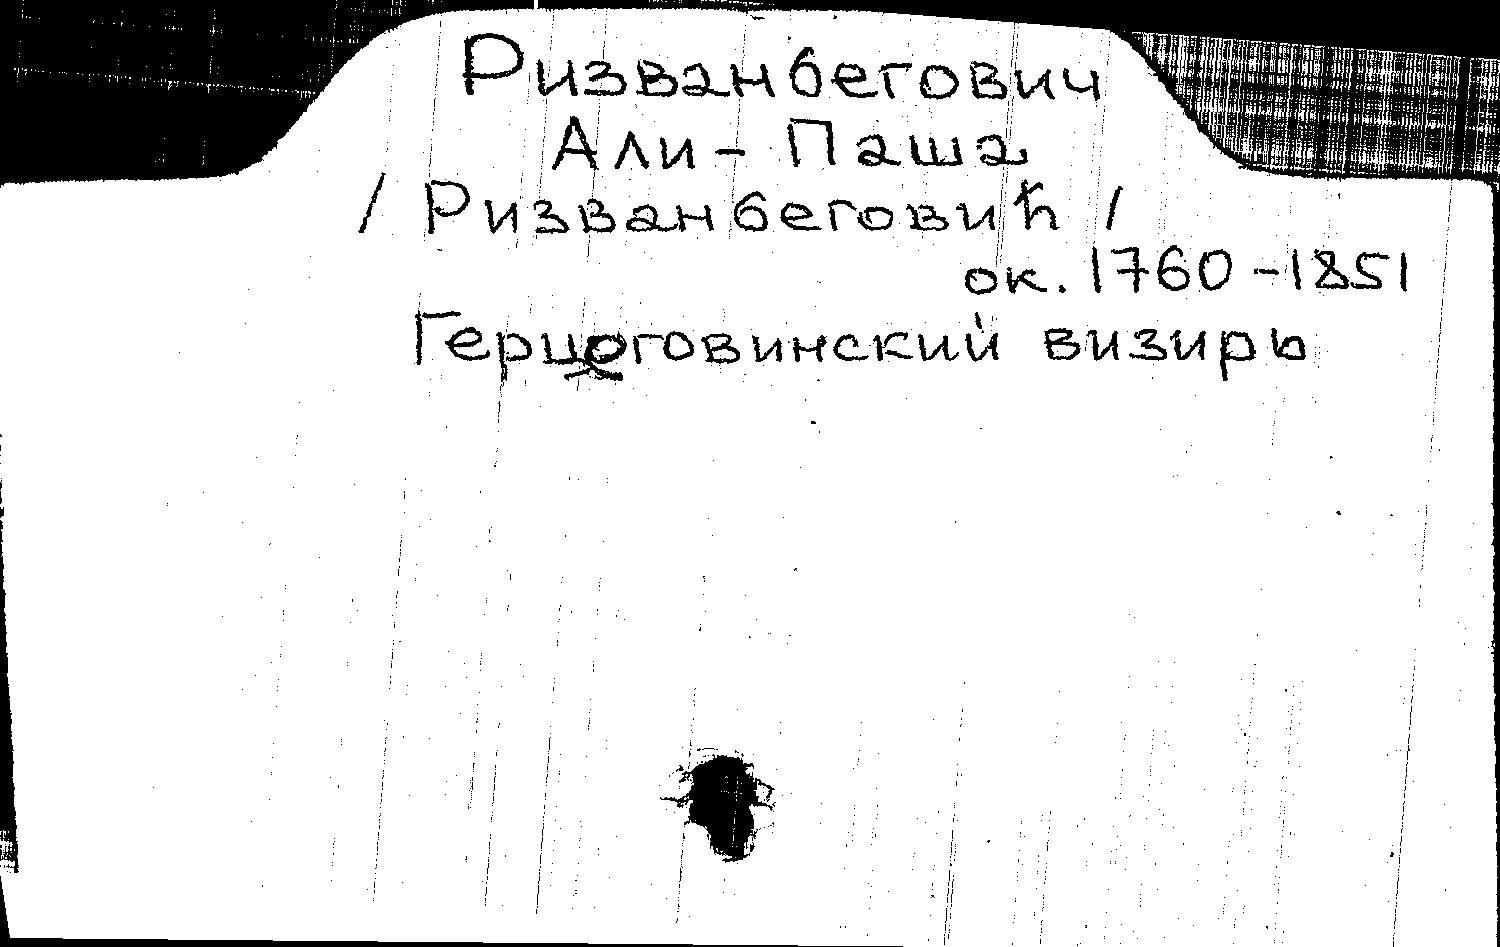 Ризванбегович
Али-Паша
/ Ризванбеговић /
ок. 1760-1851
Герцоговинский визирь